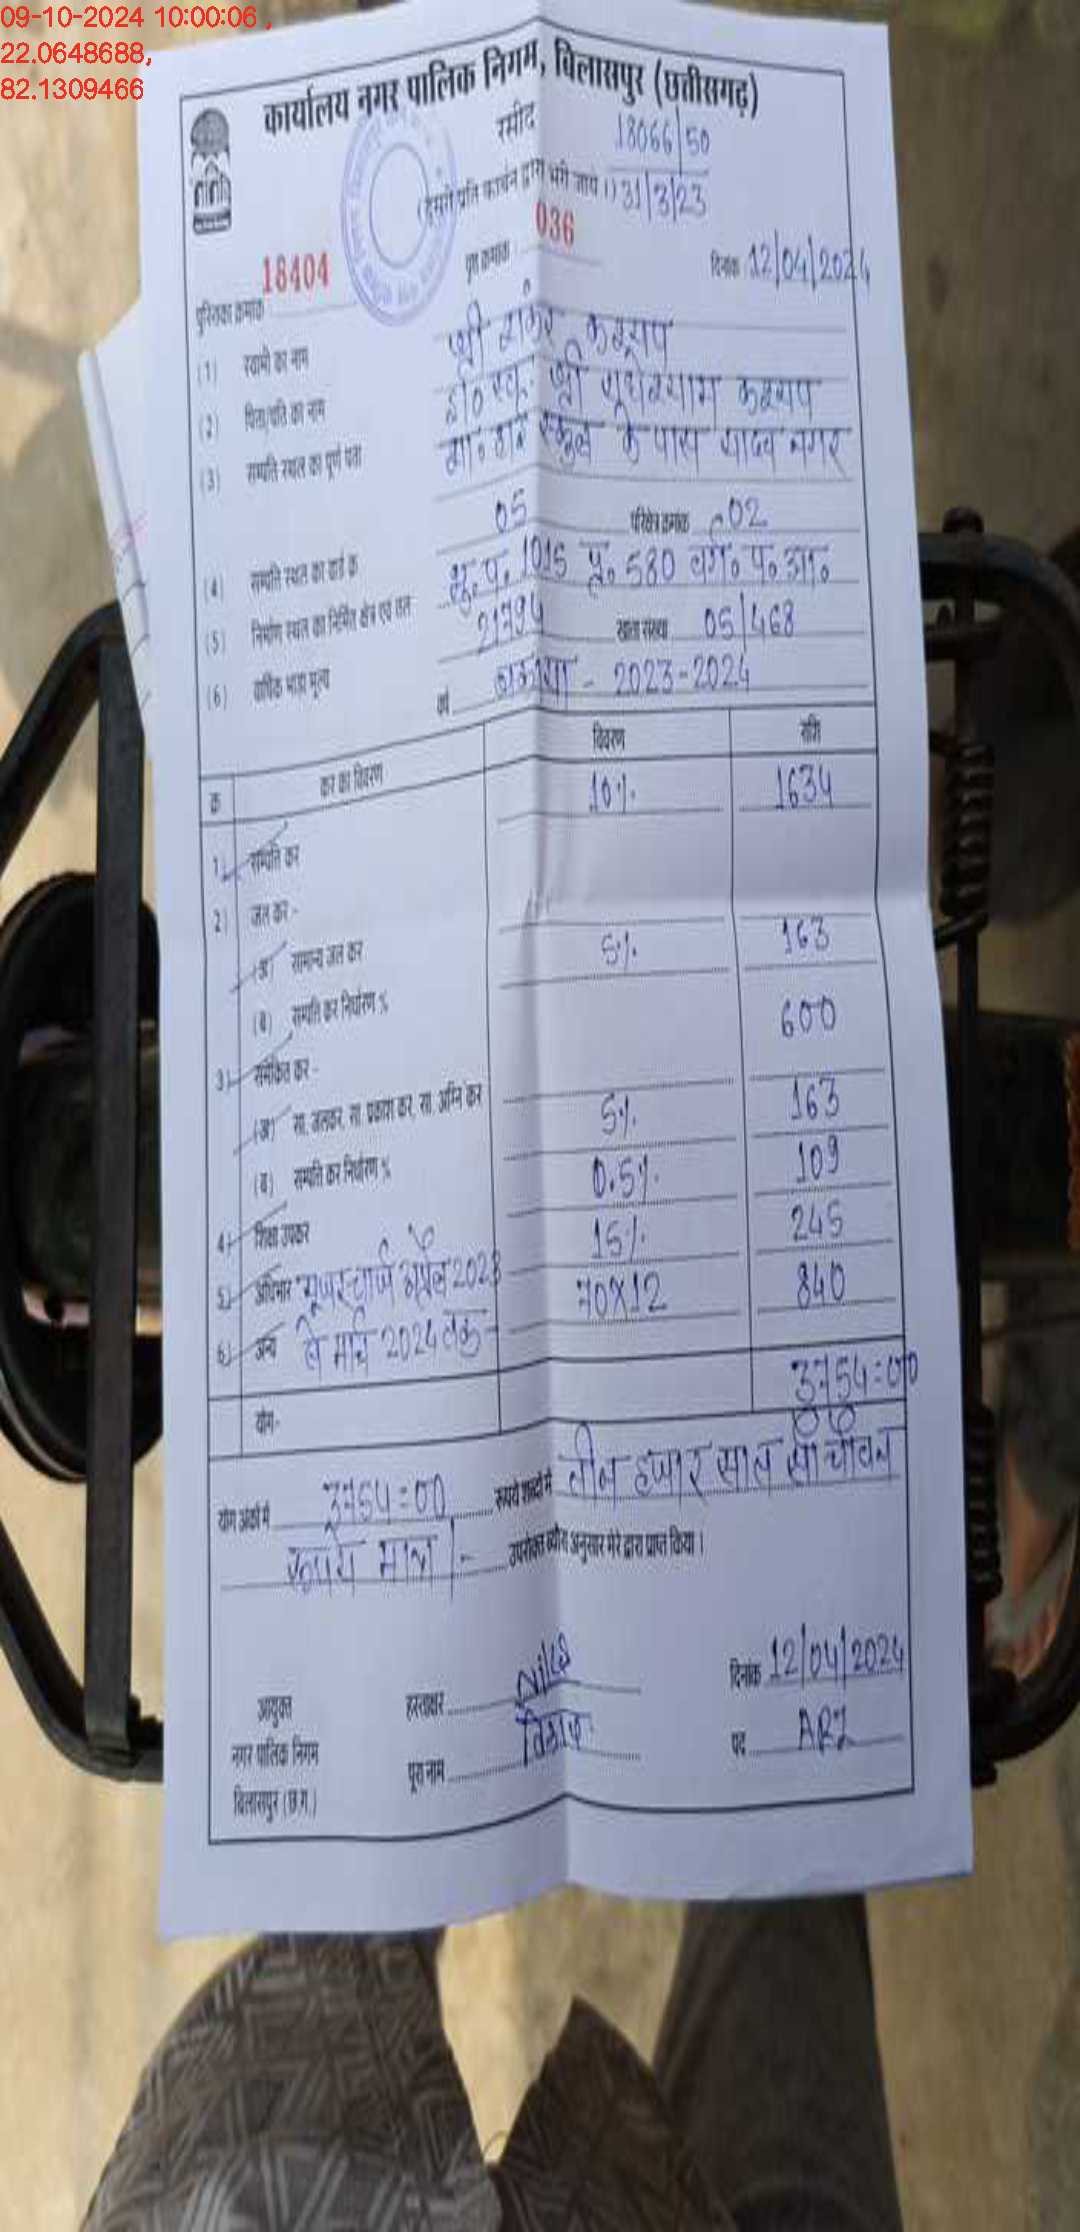 09-10-2024 10:00:06 ,
22.0648688,
82.1309466
कार्यालय नगर पालिक निगम, बिलासपुर (छत्तीसगढ़)
रसीद 18066/50
(दूसरी प्रति कार्बन द्वारा भरी जाये।) 31/3/23
पुस्तिका क्रमांक 18404 पृष्ठ क्रमांक 036 दिनांक 12/04/2024
(1) स्वामी का नाम श्री शंकर कश्यप
(2) पिता/पति का नाम स्व. श्री राधेश्याम कश्यप
(3) सम्पत्ति स्थल का पूर्ण पता स्कूल के पास यादव नगर
(4) सम्पत्ति स्थल का वार्ड क्र 05 परिक्षेत्र क्रमांक 02
(5) निर्माण स्थल का निर्मित क्षेत्र एवं तल- भू.प. 1015 प्र. 580 वर्ग. फ. आ.
(6) वार्षिक भाड़ा मूल्य 21794 खाता संख्या 05/468
वर्ष बकाया - 2023-2024
क्र कर का विवरण विवरण राशि
1) सम्पत्ति कर 10% 1634
2) जल कर :-
(अ) सामान्य जल कर 5% 163
(ब) सम्पत्ति कर निर्धारण %
3) समेकित कर :- 600
(अ) सा. जलकर, सा. प्रकाश कर, सा. अग्नि कर 5% 163
(ब) सम्पत्ति कर निर्धारण % 0.5% 109
4) शिक्षा उपकर 15% 245
5) अधिभार यूजर चार्ज अप्रैल 2023 70X12 840
6) अन्य से मार्च 2024 तक -
योग- 3754=00
योग अंकों में 3754=00 रूपये शब्दों में तीन हजार सात सौ चौवन
रूपये मात्र।- उपरोक्त ब्यौरा अनुसार मेरे द्वारा प्राप्त किया।
दिनांक 12/04/2024
आयुक्त हस्ताक्षर
नगर पालिक निगम पूरा नाम पद ARI
बिलासपुर (छ.ग.)